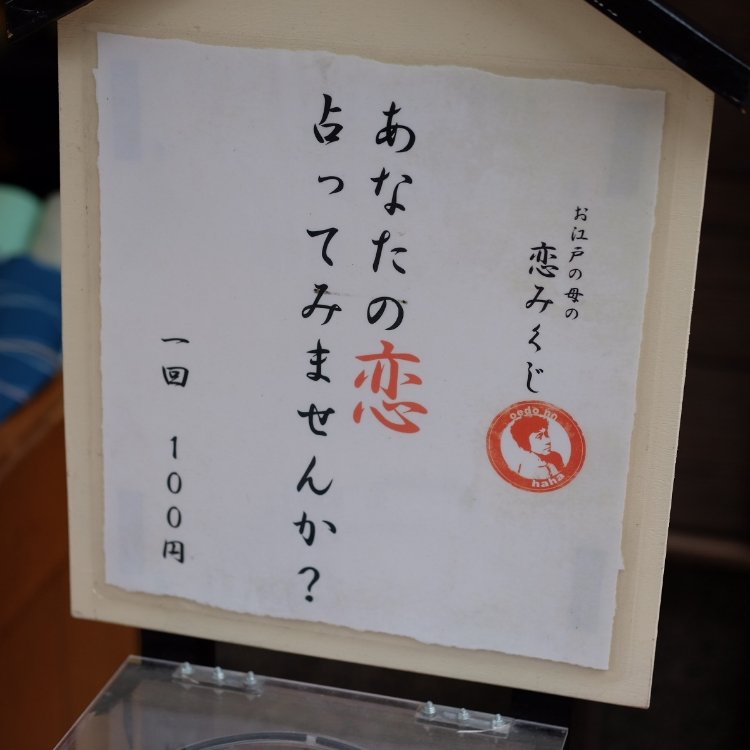 お江戸の母の
恋みくじ
oedo no
haha
あなたの恋
占ってみませんか？
一回 100円